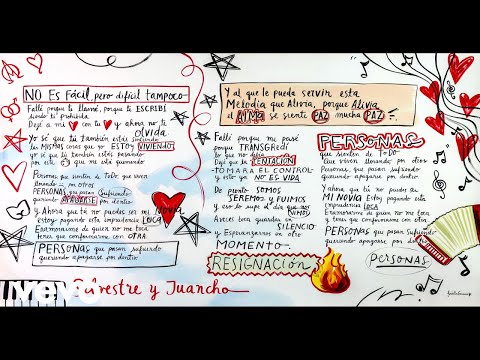 NO Es FÁCIL, pero difícil tampoco
Fallé porque te llamé, porque te ESCRIBÍ
siendo tú prohibida
Dejé a mi con tu y ahora no te
olvida
Yo sé que tú también estás sintiendo
las mismas cosas que yo ESTOY VIVIENDO
yo sé que tú también estás pasando
por eso que me está quemando
Personas que sienten de todo, que viven
llorando por otros
PERSONAS que pasan sufriendo
queriendo APAGARSE por dentro
y Ahora que tú no puedes ser mi NOVIA
Estoy pagando esta imprudencia LOCA
Enamorarme de quien no me toca
tener que conformarme con OTRA.
PERSONAS que pasan sufriendo
queriendo apagarse por dentro
Silvestre y Juancho
Y al que le pueda servir esta
Melodía que Alivia, porque Alivia
el ALMA se siente PAZ mucha PAZ
Fallé porque me pasé
porque TRANSGREDÍ
lo que no debía
Dejé que la TENTACIÓN
TOMARA EL CONTROL
y esto que NO ES VIDA
De pronto SOMOS
SEREMOS y FUIMOS
y eso lo supe el día que nos
VIMOS
A veces toca guardar en
SILENCIO
y Esperanzarnos en otro
MOMENTO.
RESIGNACIÓN
PERSONAS
que sienten de TODO
Que viven llorando por otros
Personas, que pasan sufriendo,
queriendo apagarse por dentro.
Y Ahora que tú no puedes ser
MI NOVIA Estoy pagando esta
imprudencia LOCA
Enamorarme de quien no me toca
y tener que conformarme con otra
PERSONAS que pasan sufriendo
queriendo apagarse por dentro
PERSONAS.
vevo